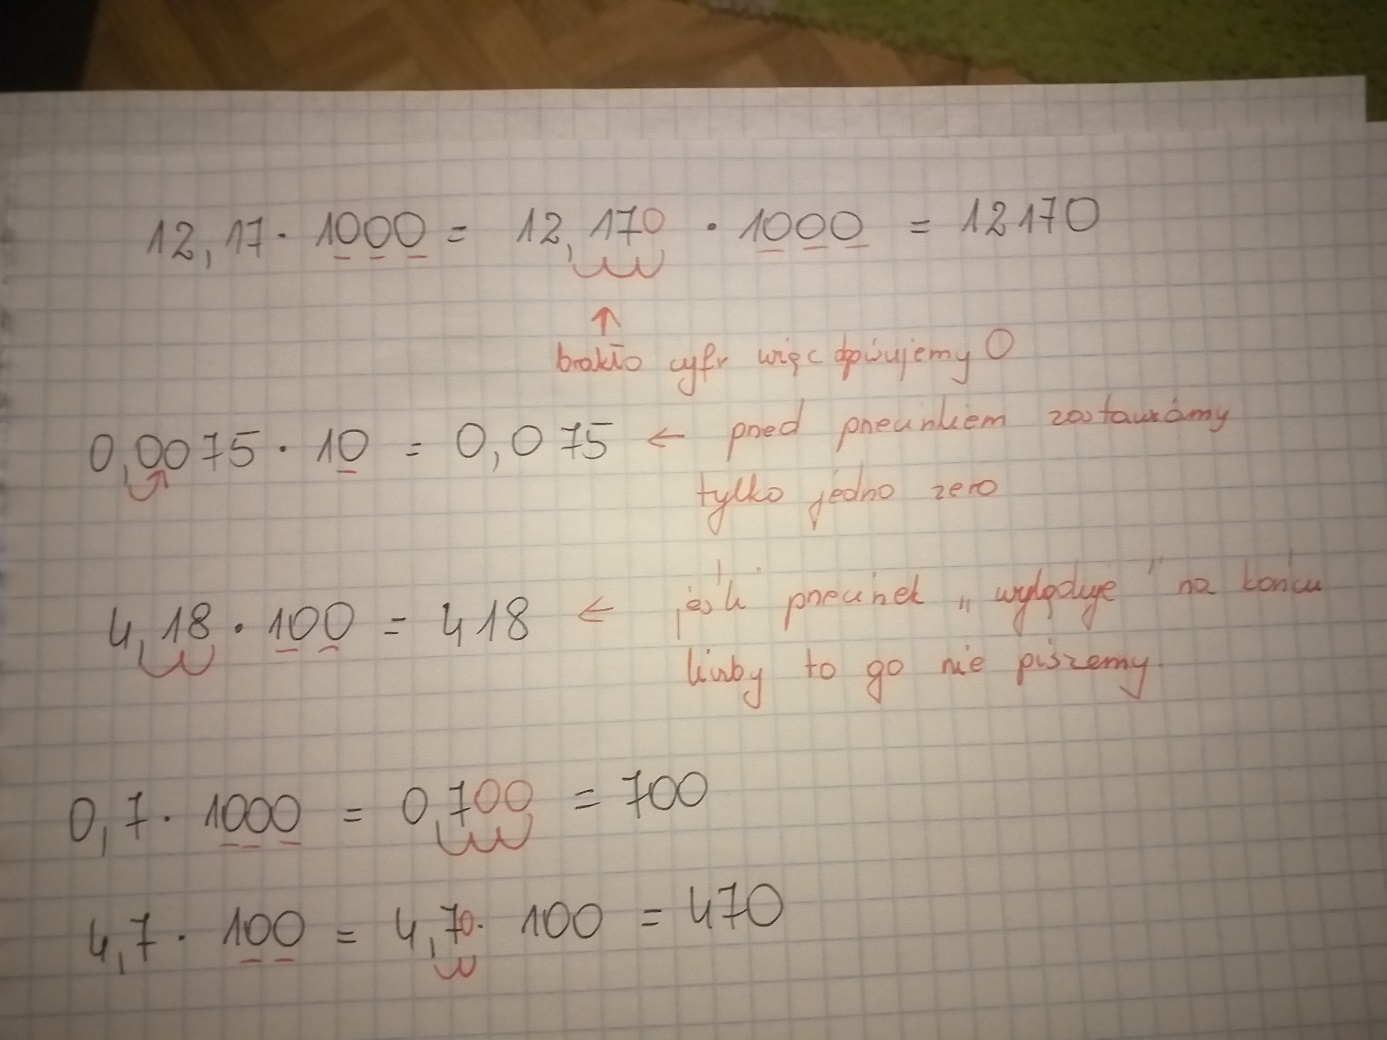 12,17 · 1000 = 12,170 · 1000 = 12170
↑
brakło cyfr więc dopisujemy 0
0,0075 · 10 = 0,075 ← przed przecinkiem zostawiamy
tylko jedno zero
4,18 · 100 = 418 ← jeśli przecinek „wyląduje" na końcu
liczby to go nie piszemy.
0,7 · 1000 = 0,700 = 700
4,7 · 100 = 4,70 · 100 = 470